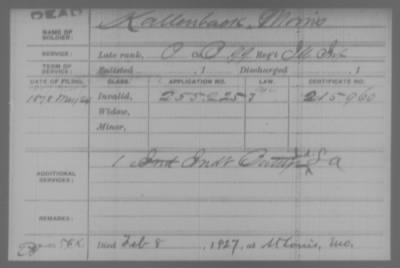 DEAD
NAME OF SOLDIER: Kallenbach, Morris
SERVICE: Late rank, P Co. Reg't Ill Inf
TERM OF SERVICE: Enlisted , 1 Discharged , 1
DATE OF FILING. CLASS. APPLICATION NO. LAW. CERTIFICATE NO.
1878 May Invalid, 255.625 215.960
Widow,
Minor,
ADDITIONAL SERVICES: 1 Ind Indt
REMARKS:
Died Feb 8, 1927, at St Louis, Mo.